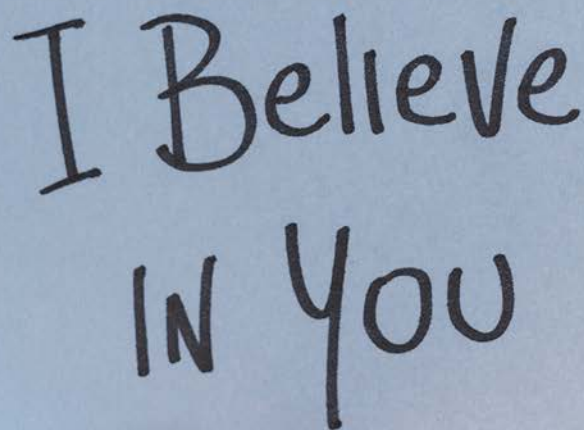 I Believe
IN You